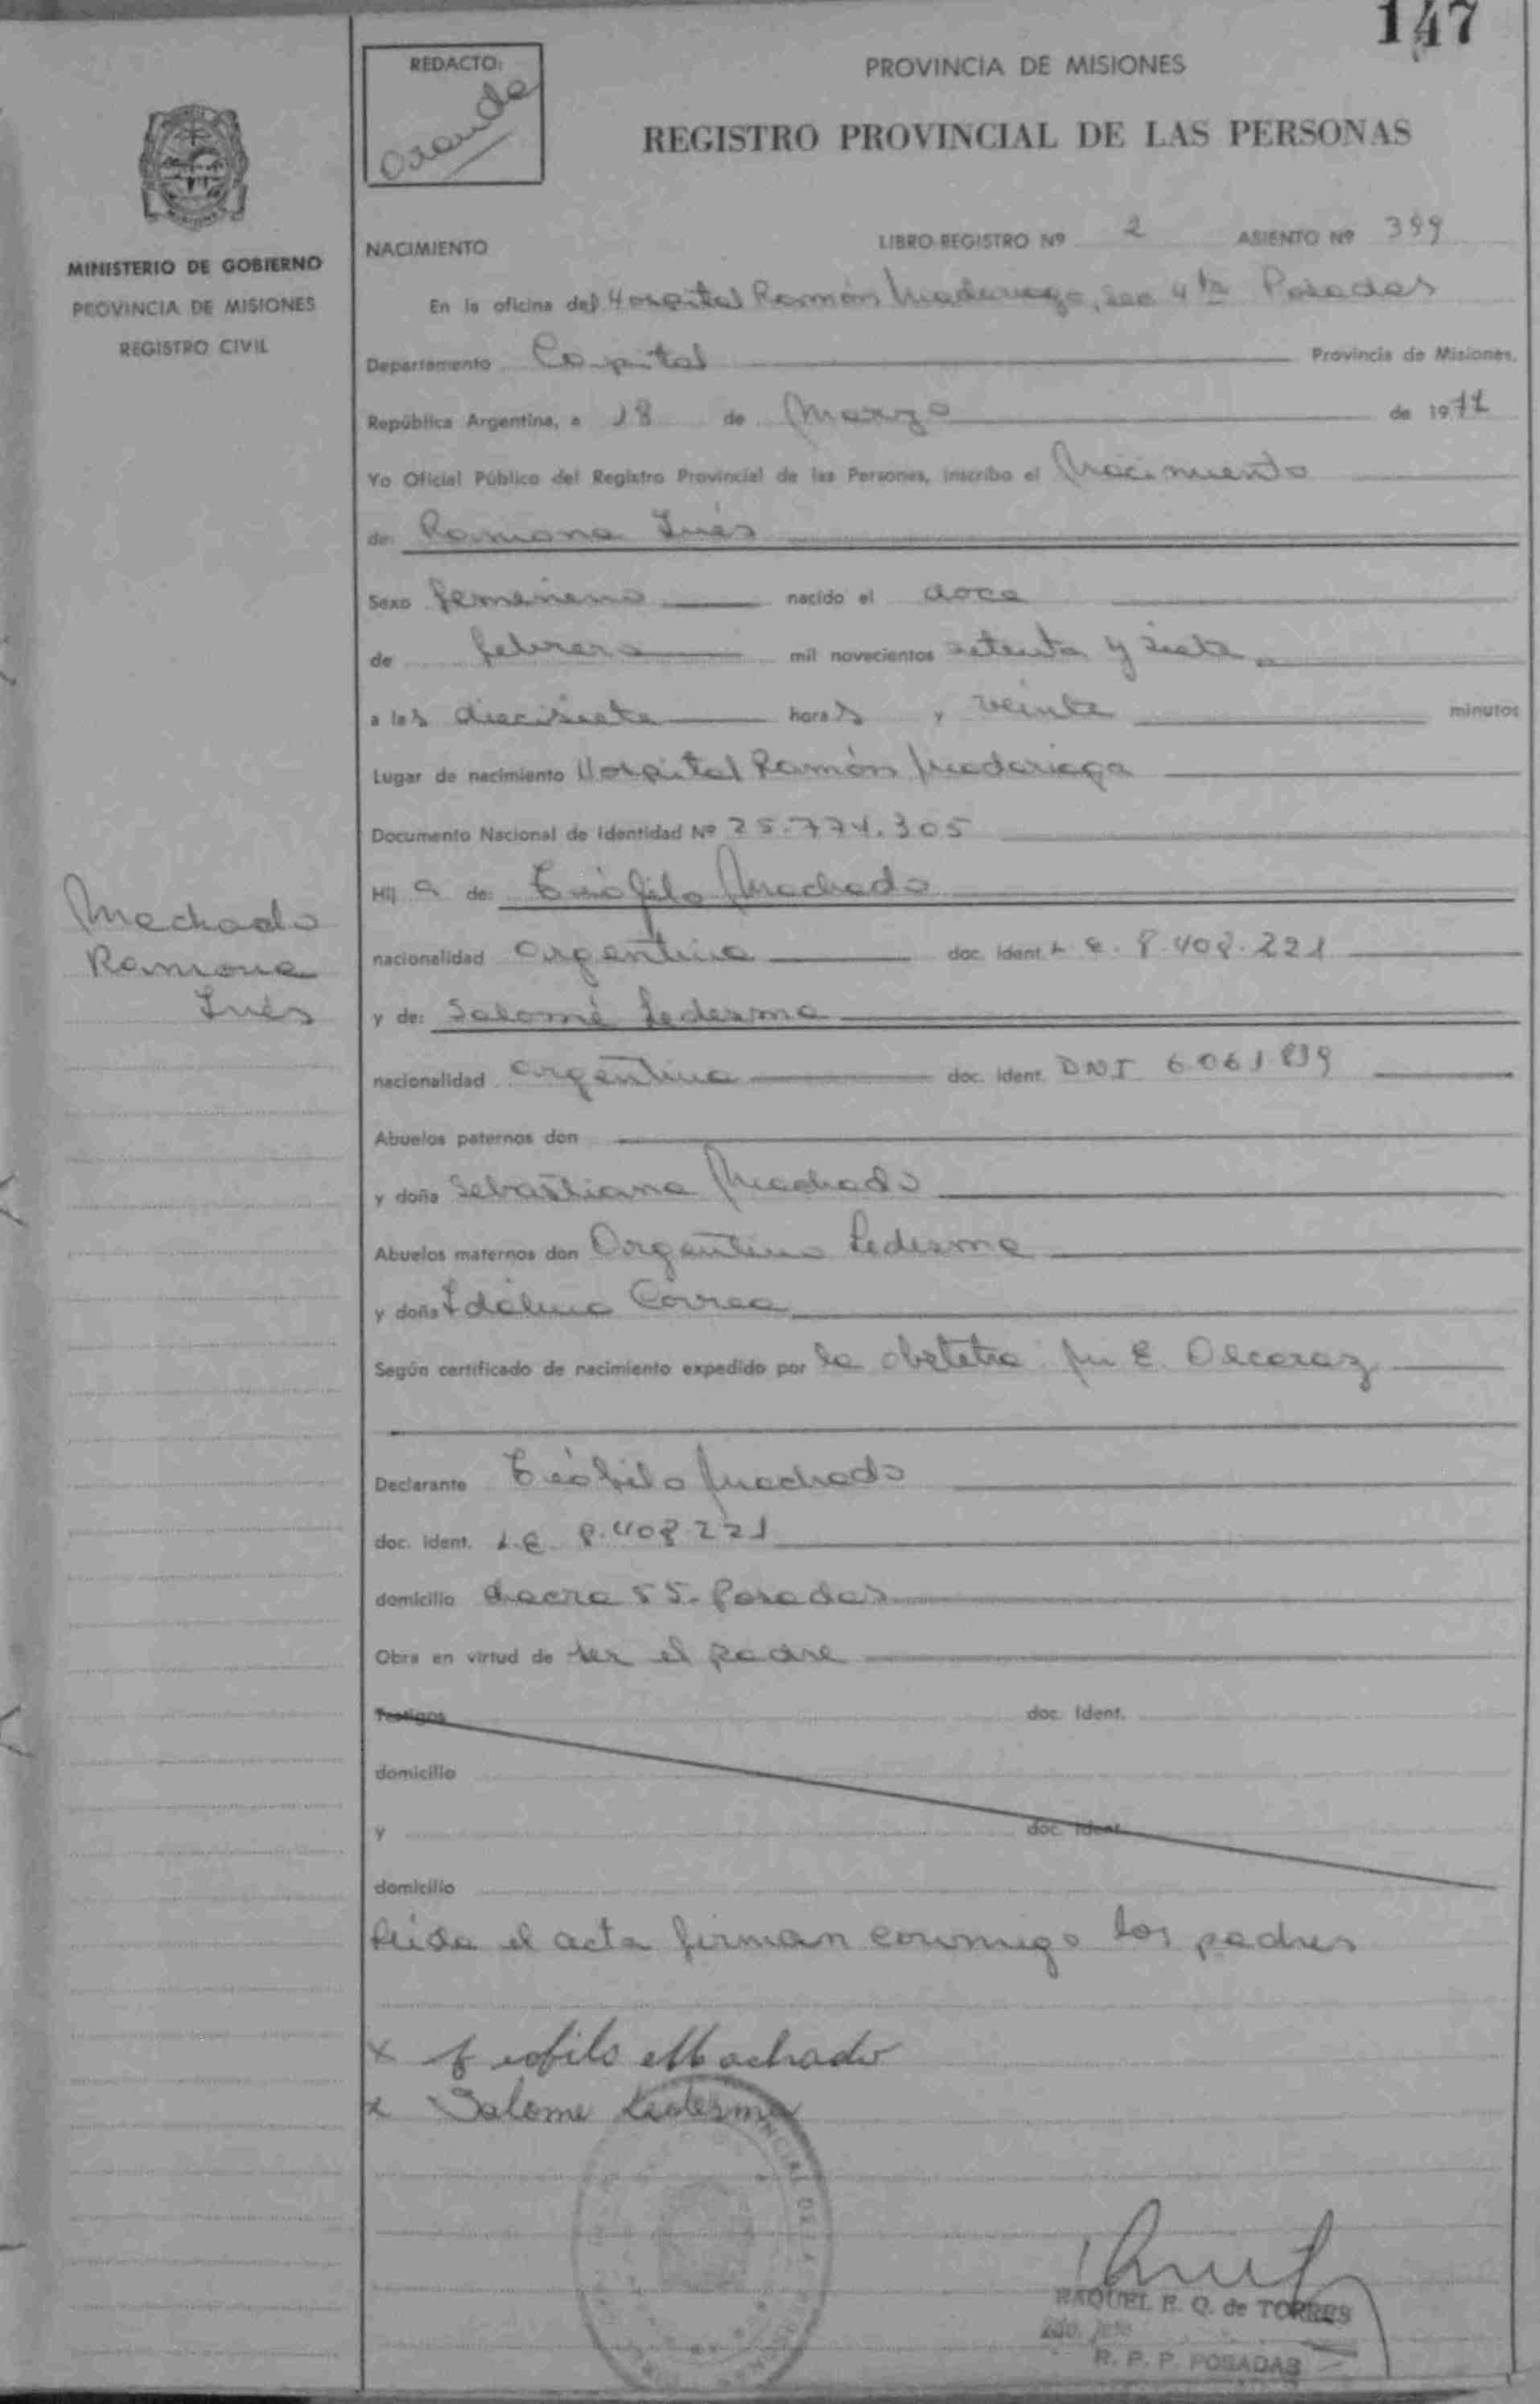 147
REDACTO:
PROVINCIA DE MISIONES
REGISTRO PROVINCIAL DE LAS PERSONAS
MINISTERIO DE GOBIERNO
PROVINCIA DE MISIONES
REGISTRO CIVIL
NACIMIENTO LIBRO-REGISTRO Nº 2 ASIENTO Nº 399
En la oficina del Hospital Ramón Madariaga, Sec 4ta Posadas
Departamento Capital Provincia de Misiones,
República Argentina, a 18 de Marzo de 1977
Yo Oficial Público del Registro Provincial de las Personas, inscribo el Nacimiento
de: Ramona Inés
Sexo femenino nacido el doce
de febrero mil novecientos setenta y siete
a las diecisiete horas y veinte minutos
Lugar de nacimiento Hospital Ramón Madariaga
Documento Nacional de Identidad Nº 25.774.305
Hij a de: Teófilo Machado
Machado
Ramona
Inés
nacionalidad argentina doc. ident. L E. 8.408.221
y de: Salomé Ledesma
nacionalidad argentina doc. ident. DNI 6.061.839
Abuelos paternos don
y doña Sebastiana Machado
Abuelos maternos don Argentino Ledesma
y doña Idalina Correa
Según certificado de nacimiento expedido por la obstetra E. Alcaraz
Declarante Teófilo Machado
doc. ident. L.E. 8.408.221
domicilio chacra 55. Posadas
Obra en virtud de ser el padre
Testigos doc. ident.
domicilio
y doc. ident.
domicilio
Leída el acta firman conmigo los padres
x Teofilo Machado
x Salome Ledesma
RAQUEL E. Q. de TORRES
R. P. P. POSADAS